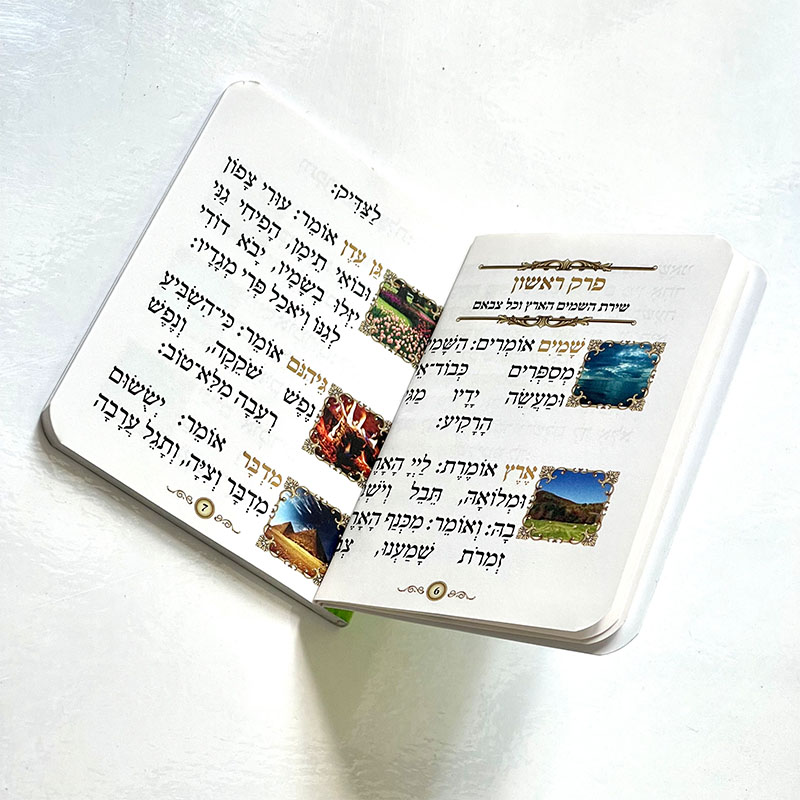 פרק ראשון
שירת השמים הארץ וכל צבאם
שָׁמַיִם אוֹמְרִים: הַשָּׁמַיִ
מְסַפְּרִים כְּבוֹד־אֵ
וּמַעֲשֵׂה יָדָיו מַגִּ
הָרָקִיעַ:
אֶרֶץ אוֹמֶרֶת: לַייָ הָאָרֶ
וּמְלוֹאָהּ, תֵּבֵל וְיֹשְׁ
בָהּ: וְאוֹמֵר: מִכְּנַף הָאָרֶ
זְמִרֹת שָׁמַעְנוּ, צְ
6
לַצַּדִּיק:
גַּן עֵדֶן אוֹמֵר: עוּרִי צָפוֹן
וּבוֹאִי תֵימָן, הָפִיחִי גַנִּי
יִזְּלוּ בְשָׂמָיו, יָבֹא דוֹדִי
לְגַנּוֹ וְיֹאכַל פְּרִי מְגָדָיו:
גֵּיהִנֹּם אוֹמֵר: כִּי־הִשְׂבִּיעַ
נֶפֶשׁ שֹׁקֵקָה, וְנֶפֶשׁ
רְעֵבָה מִלֵּא־טוֹב:
מִדְבָּר אוֹמֵר: יְשֻׂשׂוּם
מִדְבָּר וְצִיָּה, וְתָגֵל עֲרָבָה
7